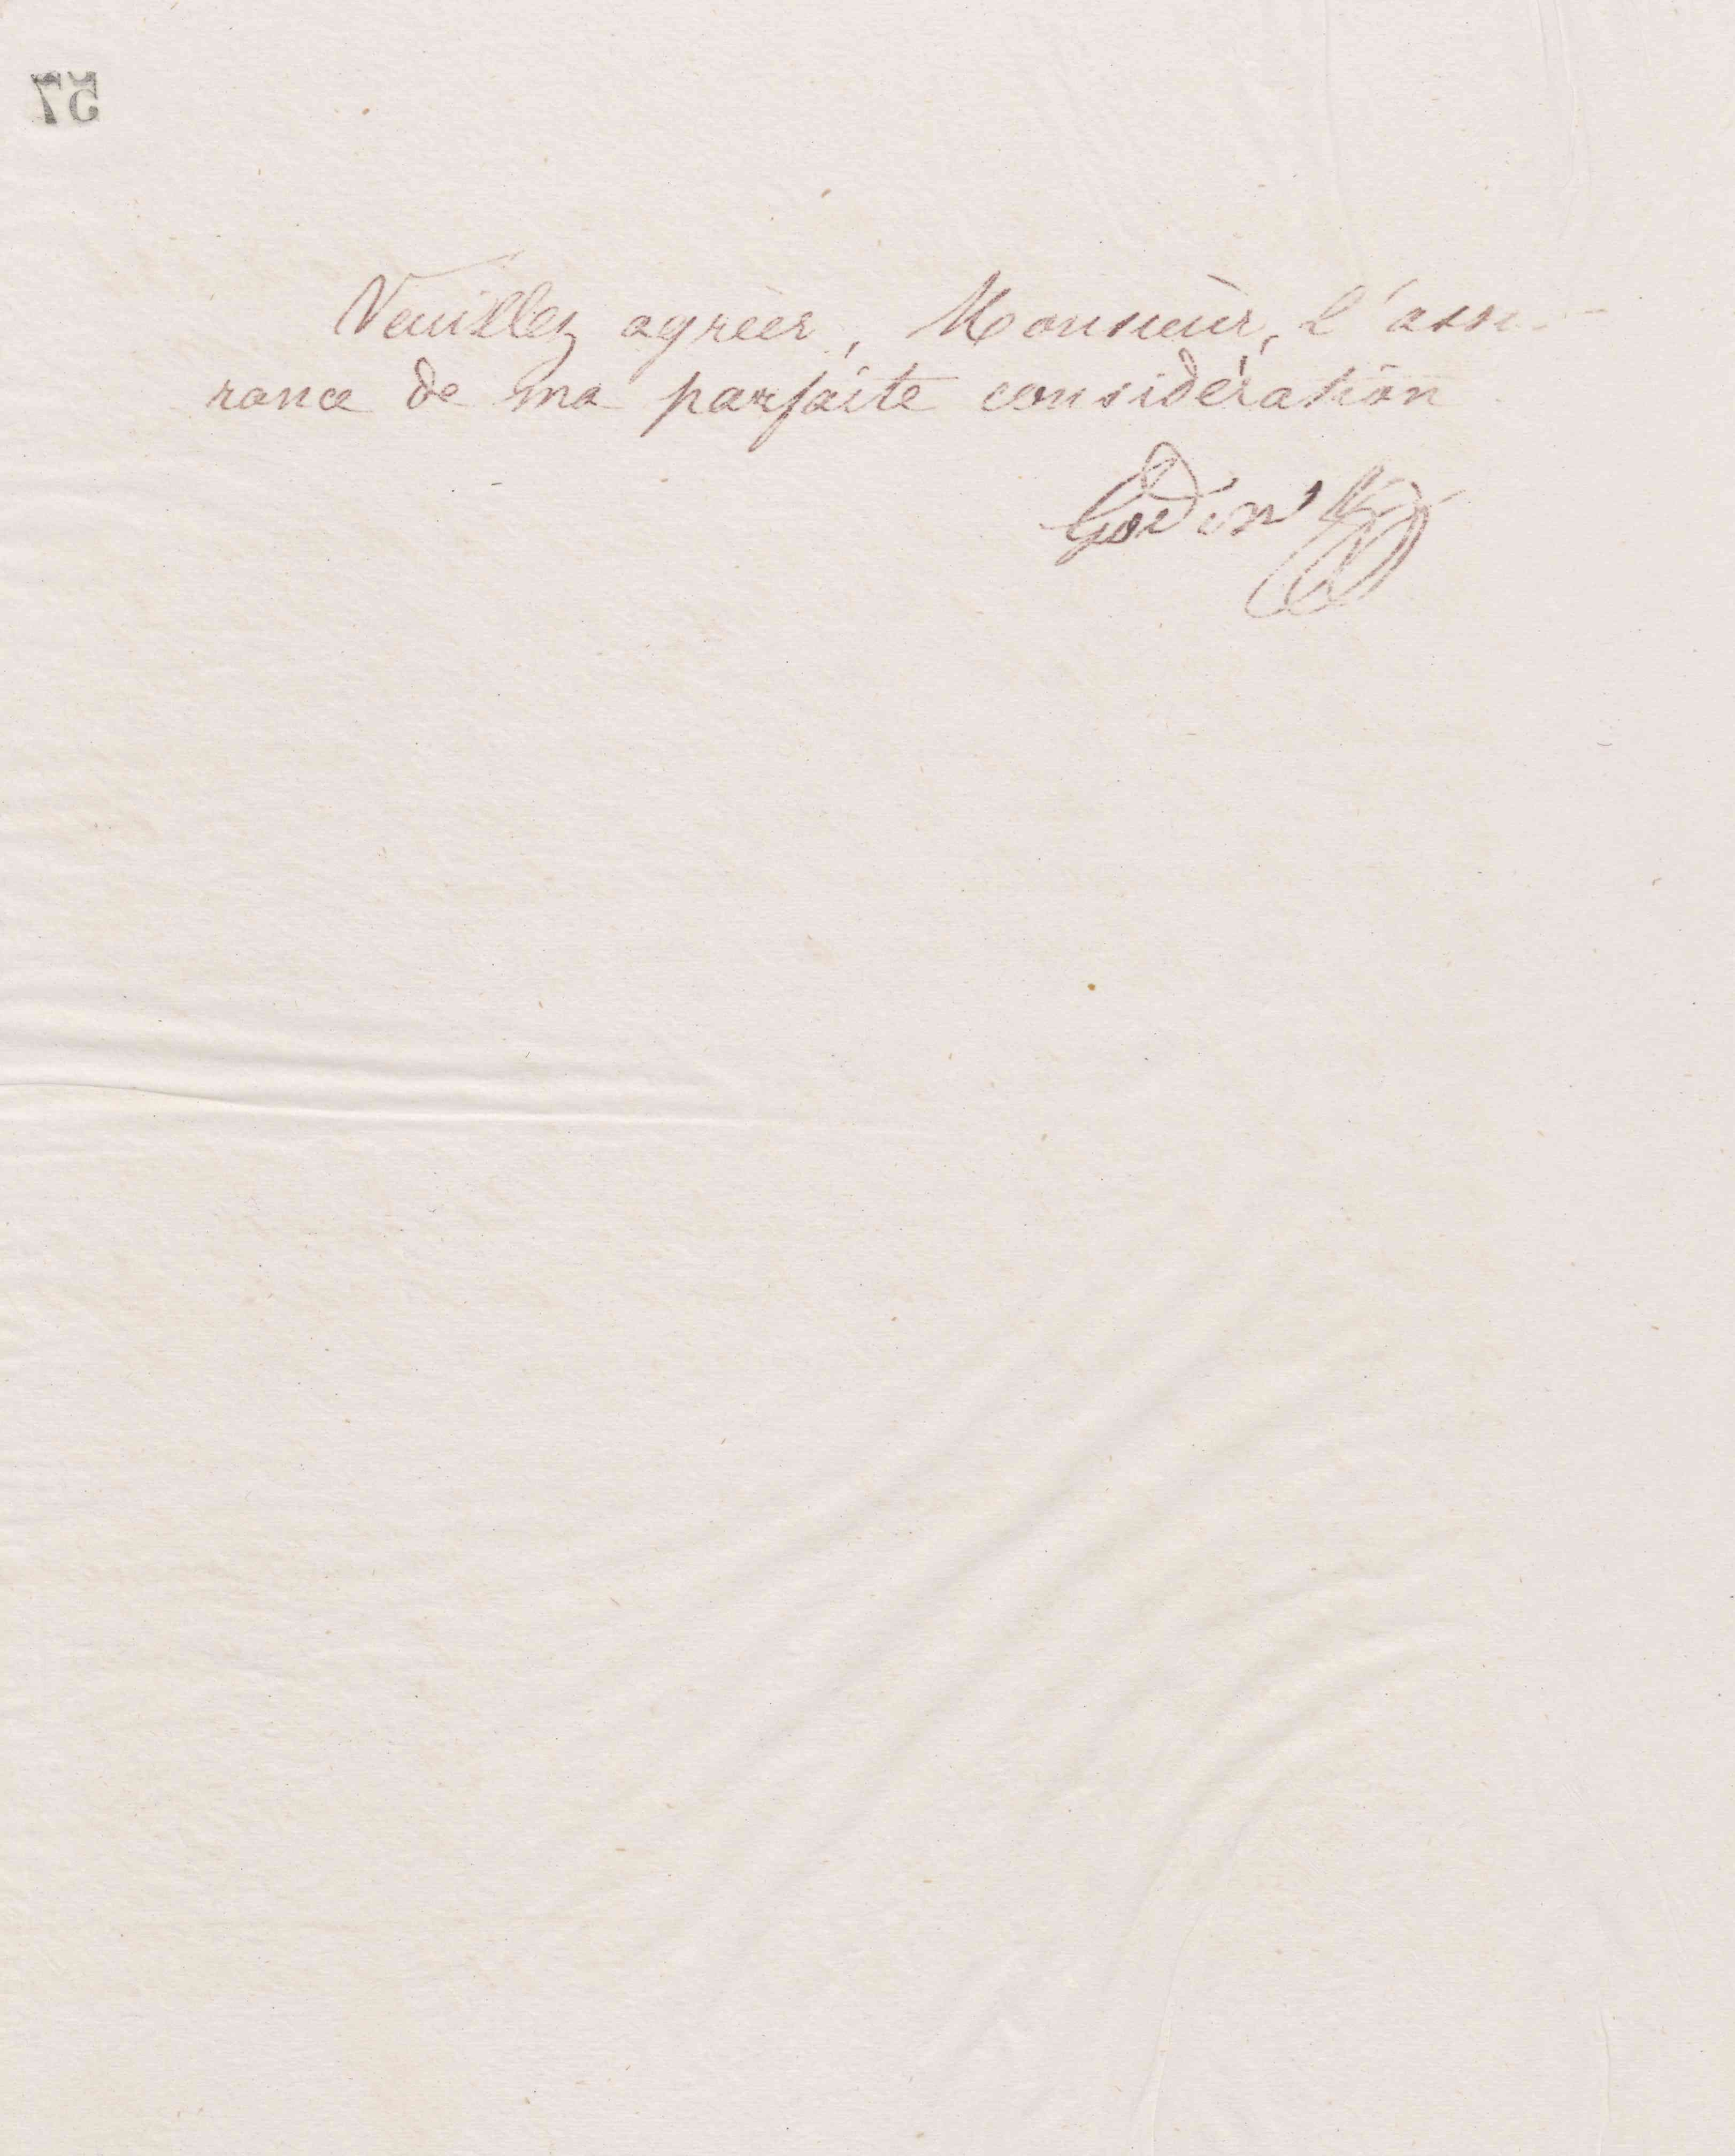 57
Veuillez agréer, Monsieur, l'assu-
rance de ma parfaite considération
Godin